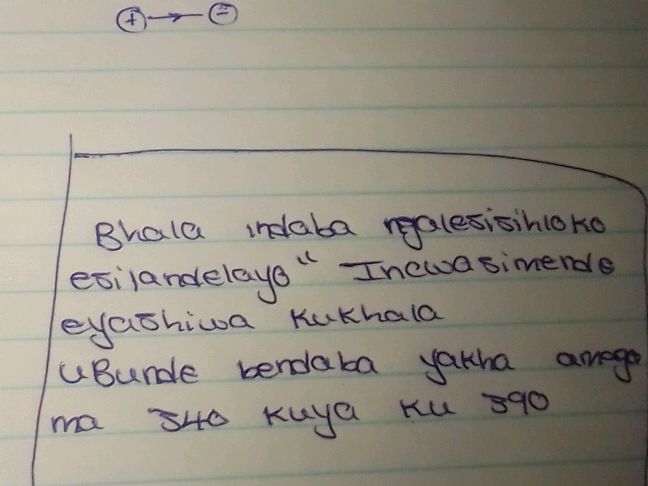 ⊕→⊖
Bhala indaba ngalesisihloko
esilandelayo “ Incwasimende
eyashiwa kukhala
uBunde bendaba yakha amega
ma 340 kuya ku 390